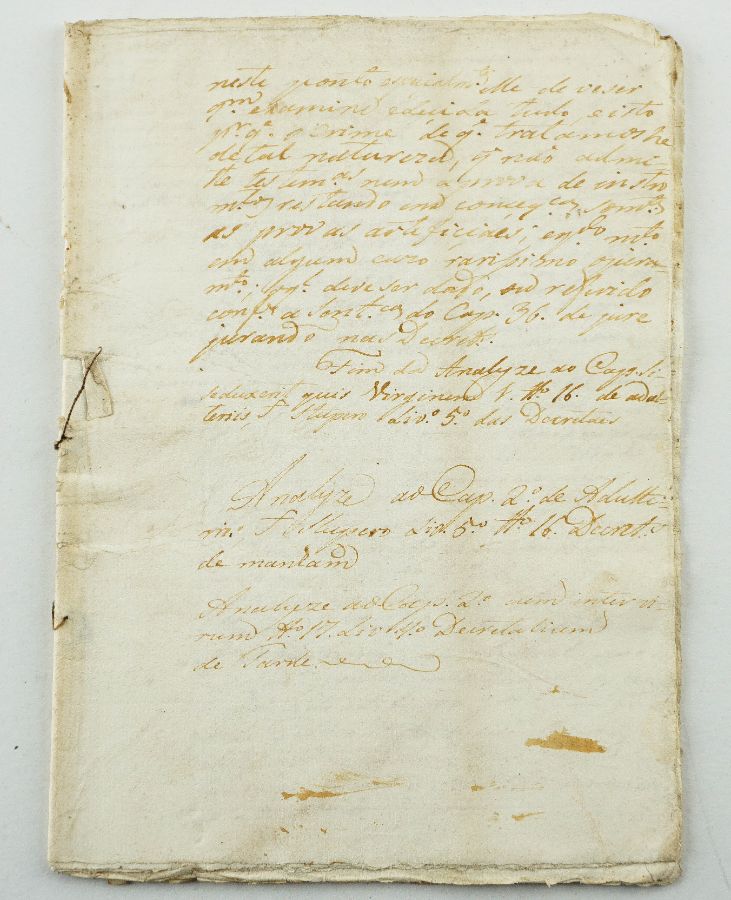 neste pont.º esencialm.te Elle deve ser
q.m examine e decida tudo, e isto
p.r q.' o crime de q.' tratamos he
de tal natureza, q' não admi-
te testem.as nem a prova de instro
m.tos restando em conseq.ca som.te
as provas arteficiaes; e q.do m.to
em algum cazo rarissimo o jura-
m.to; o q.l deve ser dado, ou referido
conf.e a Sent.ca do Cap. 36. de jure
jurando nas Decret.
Fim da Analyze ao Cap. Si
seduxerit quis Virginem 1. tt.º 16. de adul
teriis et Stupro Liv.º 5.º das Decretaes
Analyze ao Cap. 2.º de Adulte-
riis et Stupro Liv. 5.º tt.º 16. Decret.
de manham
Analyze ao Cap. 2.º cum inter vi-
rum tt.º 17. Liv. 4.º Decretalium
de Tarde